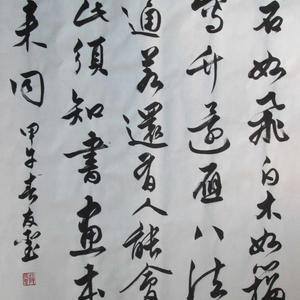 石如飛白木如籀
寫竹還應八法
通若還有人能會
此須知書畫本
来同
甲午春友